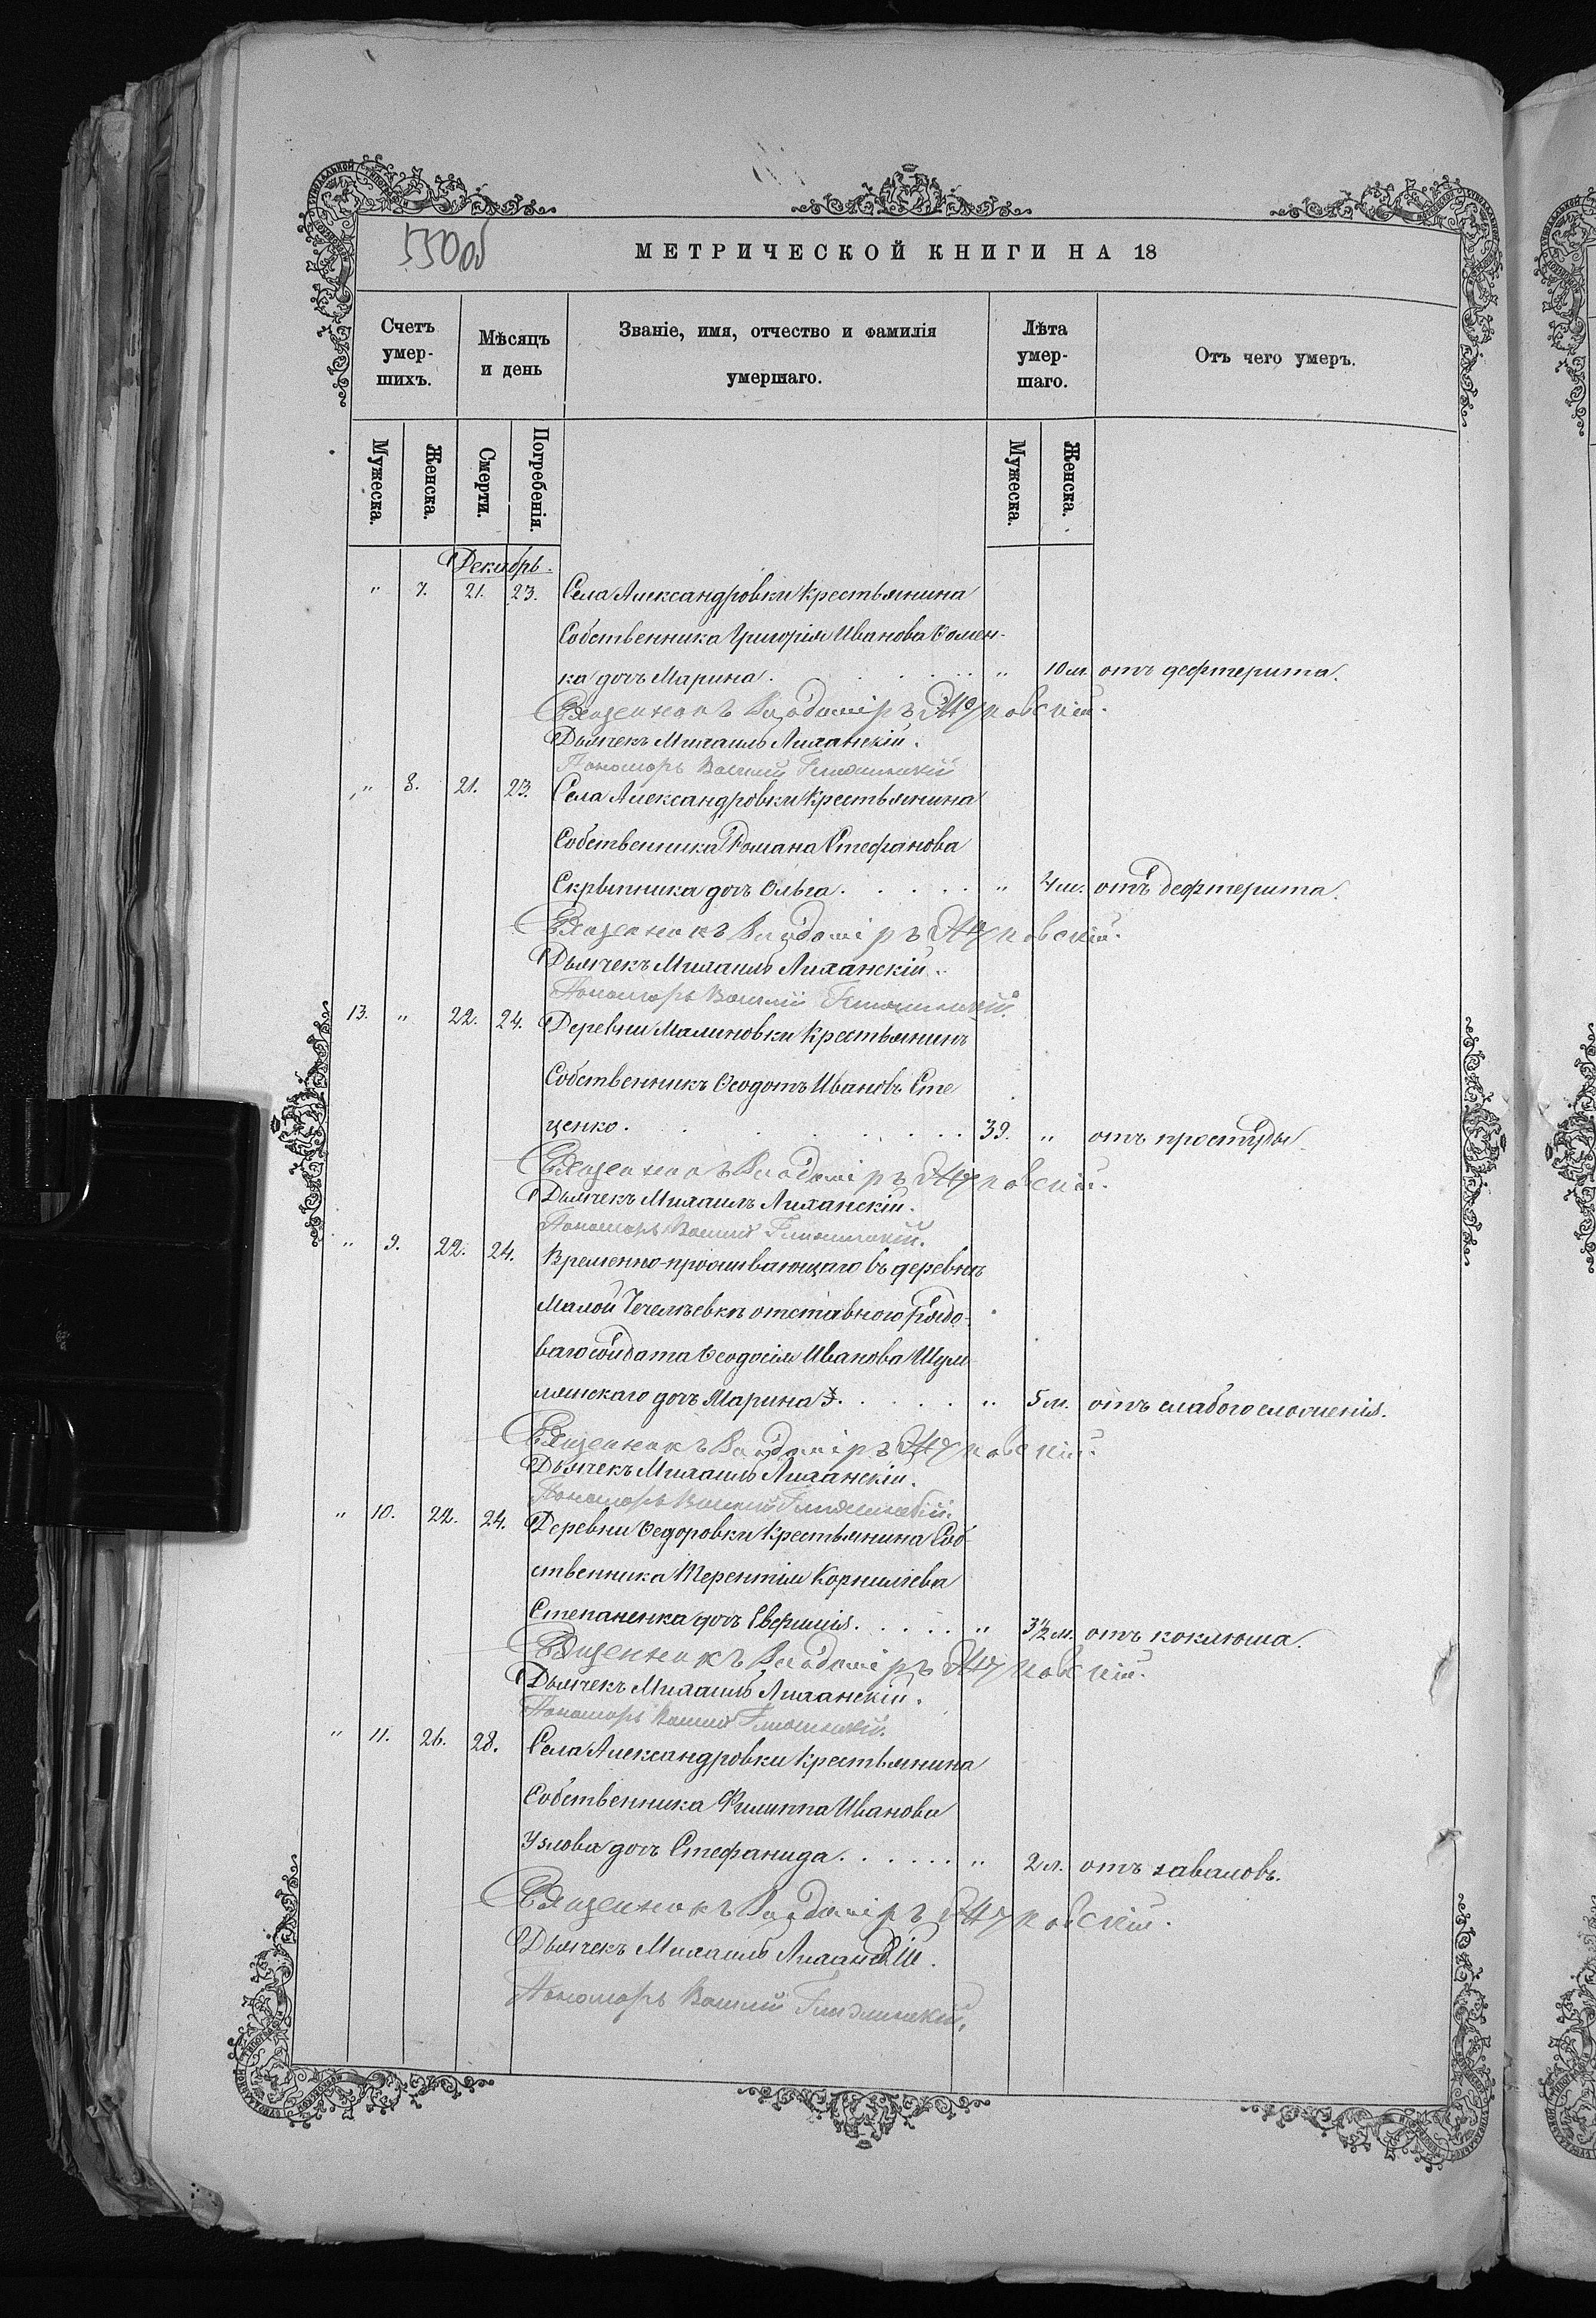 550об
МЕТРИЧЕСКОЙ КНИГИ НА 18
Счетъ умер-шихъ.
Мѣсяцъ и день
Званіе, имя, отчество и фамилія умершаго.
Лѣта умер-шаго.
Отъ чего умеръ.
Мужеска. Женска. Смерти. Погребенія. Мужеска. Женска.
Декабрь.
" 7. 21. 23. Села Александровки крестьянина
Собственника Григорія Иванова Фомен-
ка дочь Марина. " 10 м. отъ дефтерита.
Священникъ Владиміръ
Дьячекъ Михаилъ Лиханскій.
Пономарь Василий
" 8. 21. 23. Села Александровки крестьянина
Собственника Романа Стефанова
Скрыпника дочь Ольга. " 4 м. отъ дефтерита.
Священникъ Владиміръ
Дьячекъ Михаилъ Лиханскій.
Пономарь Василий
13. " 22. 24. Деревни Малиновки крестьянинъ
Собственникъ Ѳеодотъ Ивановъ Сте
ценко. 39. " отъ простуды.
Священникъ Владиміръ
Дьячекъ Михаилъ Лиханскій.
Пономарь Василий
" 9. 22. 24. Временно-проживающаго въ деревнѣ
Малой Чечелѣевкѣ отставного рядо-
ваго солдата Ѳеодосія Иванова Шум
лянскаго дочь Марина. " 5 м. отъ слабого сложенія.
Священникъ Владиміръ
Дьячекъ Михаилъ Лиханскій.
Пономарь Василий
" 10. 22. 24. Деревни Ѳедоровки крестьянина Соб-
ственника Терентія Корнилiева
Степаненка дочь Евфимія. " 3 1/2 м. отъ коклюша.
Священникъ Владиміръ
Дьячекъ Михаилъ Лиханскій.
Пономарь Василий
" 11. 26. 28. Села Александровки крестьянина
Собственника Филиппа Иванова
Узлова дочь Стефанида. " 2 л. отъ заваловъ.
Священникъ Владиміръ
Дьячекъ Михаилъ Лиханскій.
Пономарь Василий